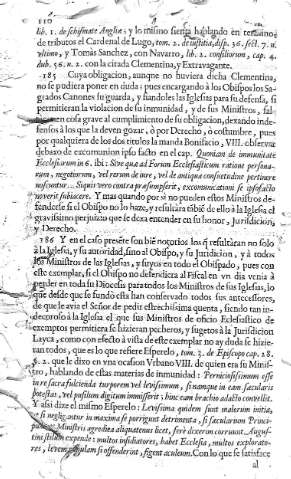 110
lib. 1. de schismate Angliæ; y lo mismo sienta hablando en termino
de tributos el Cardenal de Lugo, tom. 2. de iustitia, disp. 36. sect. 7. n.
vltimo, y Tomàs Sanchez, con Navarro, lib. 2. consiliorum, cap. 4.
dub. 56. n. 2. con la citada Clementina, y Extravagante.
185 Cuya obligacion, aunque no huviera dicha Clementina,
no se pudiera poner en duda; pues encargando à los Obispos los Sa-
grados Canones su guarda, y fiandoles las Iglesias para su defensa, si
permitieran la violacion de su inmunidad, y de sus Ministros, fal-
en cosa grave al cumplimiento de su obligacion, dexando inde-
fensos à los que la deven gozar, ò por Derecho, ò costumbre, pues
por qualquiera de los dos titulos la manda Bonifacio, VIII. observar
debaxo de excomunion ipso facto en el cap. Quoniam de immunitate
Ecclesiarum in 6. ibi: Sive quæ ad Forum Ecclesiasticum ratione persona-
rum, negotiorum, vel rerum de iure, vel de antiqua consuetudine pertinere
noscuntur. Siquis vero contra præsumpserit, excommunicationi se ipso facto
noverit subiacere. Y mas quando por si no pueden estos Ministros de-
fenderse si el Obispo no lo haze, y resultàra tãbiè de ello à la Iglesia el
gravissimo perjuizio que se dexa entender en su honor, Jurisdicion,
y Derecho.
186 Y en el caso presente son biè notorios los q̃ resultàran no solo
à la Iglesia, y su autoridad, sino al Obispo, y su Juridicion, y à todos
los Ministros de las Iglesias, y suyos en todo el Obispado; pues con
este exemplar, si el Obispo no defendiera al Fiscal en vn dia venia à
perder en toda su Diocesis para todos los Ministros de sus Iglesias, lo
que desde que se fundò esta han conservado todos sus antecessores,
de que le avia el Señor de pedir estrechissima quenta, siendo tan in-
decoroso à la Iglesia el que sus Ministros de oficio Eclesiastico de
exemptos permitiera se hizieran pecheros, y sugetos à la Juridicion
Layca; como con efecto à vista de este exemplar no ay duda se hizie-
ran todos, que es lo que refiere Esperelo, tom. 3. de Episcopo cap. 28.
§. 2. que le dixo en vna ocasion Urbano VIII. de quien era su Minis-
tro, hablando de estas materias de inmunidad: Perniciosissimum esse
in re sacra fulcienda turporem vel levissimum, si namque in eam sæcularis
potestas, vel pusillum digitum immisserit; hinc eam brachio adacto convellit.
Y assi dize el mismo Esperelo: Levissima quidem sunt malorum initia,
si negligantur in maxima se porrigunt detrimenta, si sæcularium Princi-
Ministris agrodica aliquatenus licet, serò dixeris corruunt. Augus-
tinus illum expende: multos insidiatores, habet Ecclesia, multos explorato-
res, levem si offenderint, figent aculeum. Con lo que se satisface
al